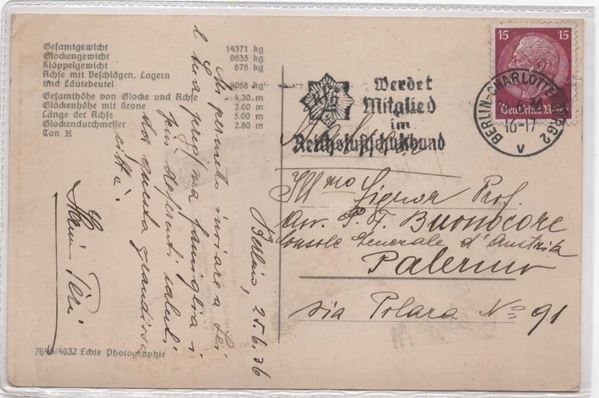 Gesamtgewicht 14371 kg
Glockengewicht 9635 kg
Klöppelgewicht 678 kg
Achse mit Beschlägen, Lagern
und Läutebeutel 4058 kg
Gesamthöhe von Glocke und Achse 4.30 m
Glockenhöhe mit Krone 2.60 m
Länge der Achse 5.00 m
Glockendurchmesser 2.80 m
Ton E
Mi permetto inviare a Lei
e Sua famiglia i
più deferenti saluti
da questa grandiosa
città.
Berlin, 25.6.36
7649/4032 Echte Photographie
Werdet
Mitglied
im
Reichsluftschutzbund
15 15
Deutsches Reich
BERLIN-CHARLOTTENBURG 2
16-17
v
Ill mo Signor Prof.
Avv. P. F. Buonocore
Console Generale d'Austria
Palermo
via Polara No 91